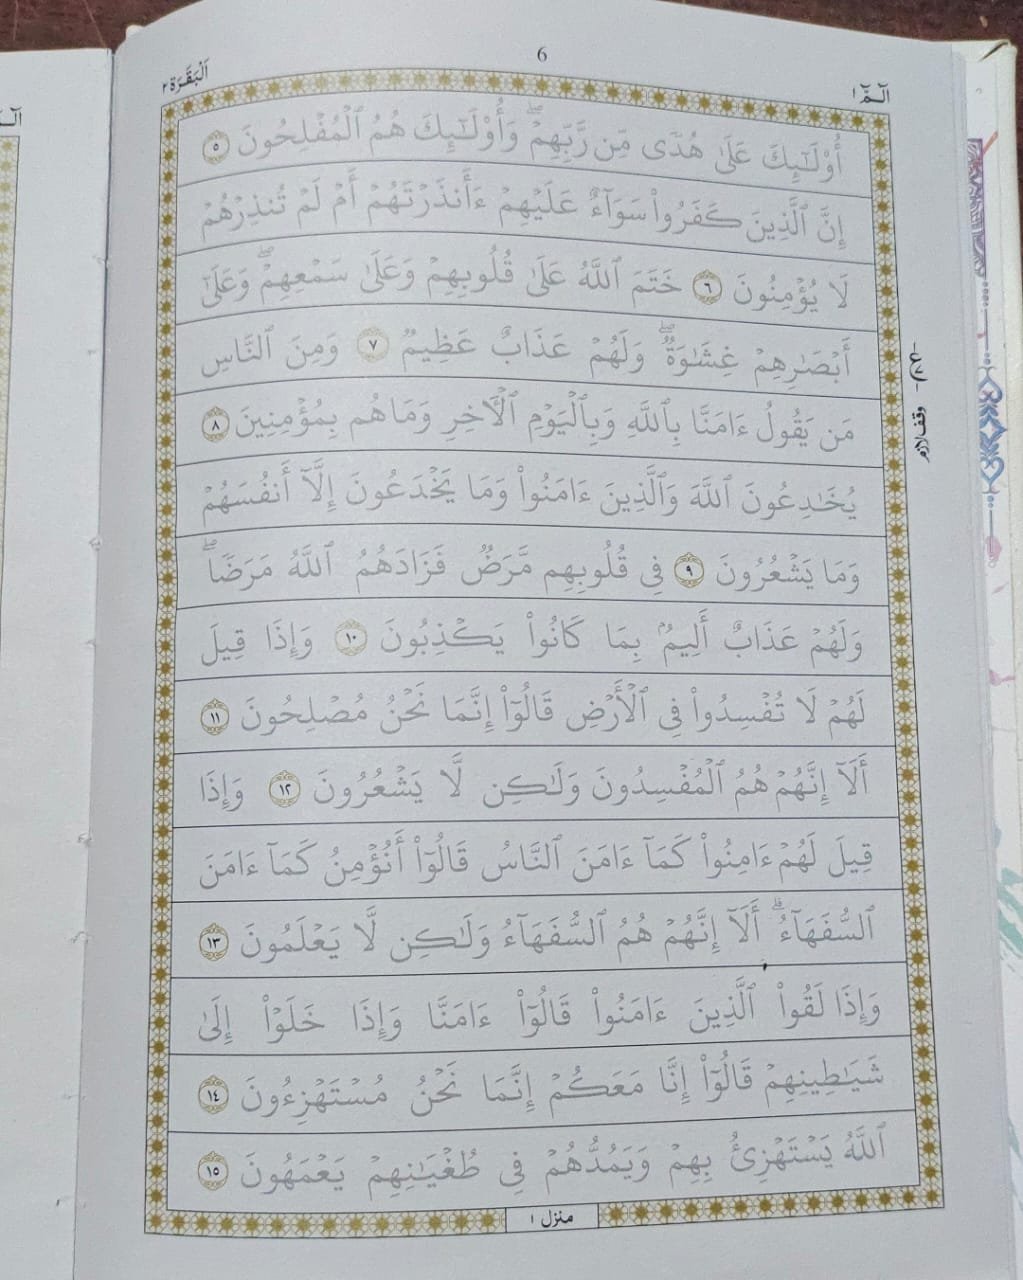 6
الٓمّٓ ١
اَلْبَقَرَة ٢
أُوْلَٰٓئِكَ عَلَىٰ هُدٗى مِّن رَّبِّهِمۡۖ وَأُوْلَٰٓئِكَ هُمُ ٱلۡمُفۡلِحُونَ ٥
إِنَّ ٱلَّذِينَ كَفَرُواْ سَوَآءٌ عَلَيۡهِمۡ ءَأَنذَرۡتَهُمۡ أَمۡ لَمۡ تُنذِرۡهُمۡ
لَا يُؤۡمِنُونَ ٦ خَتَمَ ٱللَّهُ عَلَىٰ قُلُوبِهِمۡ وَعَلَىٰ سَمۡعِهِمۡۖ وَعَلَىٰٓ
أَبۡصَٰرِهِمۡ غِشَٰوَةٞۖ وَلَهُمۡ عَذَابٌ عَظِيمٞ ٧ وَمِنَ ٱلنَّاسِ
مَن يَقُولُ ءَامَنَّا بِٱللَّهِ وَبِٱلۡيَوۡمِ ٱلۡأٓخِرِ وَمَا هُم بِمُؤۡمِنِينَ ٨
يُخَٰدِعُونَ ٱللَّهَ وَٱلَّذِينَ ءَامَنُواْ وَمَا يَخۡدَعُونَ إِلَّآ أَنفُسَهُمۡ
وَمَا يَشۡعُرُونَ ٩ فِي قُلُوبِهِم مَّرَضٞ فَزَادَهُمُ ٱللَّهُ مَرَضٗاۖ
وَلَهُمۡ عَذَابٌ أَلِيمُۢ بِمَا كَانُواْ يَكۡذِبُونَ ١٠ وَإِذَا قِيلَ
لَهُمۡ لَا تُفۡسِدُواْ فِي ٱلۡأَرۡضِ قَالُوٓاْ إِنَّمَا نَحۡنُ مُصۡلِحُونَ ١١
أَلَآ إِنَّهُمۡ هُمُ ٱلۡمُفۡسِدُونَ وَلَٰكِن لَّا يَشۡعُرُونَ ١٢ وَإِذَا
قِيلَ لَهُمۡ ءَامِنُواْ كَمَآ ءَامَنَ ٱلنَّاسُ قَالُوٓاْ أَنُؤۡمِنُ كَمَآ ءَامَنَ
ٱلسُّفَهَآءُۗ أَلَآ إِنَّهُمۡ هُمُ ٱلسُّفَهَآءُ وَلَٰكِن لَّا يَعۡلَمُونَ ١٣
وَإِذَا لَقُواْ ٱلَّذِينَ ءَامَنُواْ قَالُوٓاْ ءَامَنَّا وَإِذَا خَلَوۡاْ إِلَىٰ
شَيَٰطِينِهِمۡ قَالُوٓاْ إِنَّا مَعَكُمۡ إِنَّمَا نَحۡنُ مُسۡتَهۡزِءُونَ ١٤
ٱللَّهُ يَسۡتَهۡزِئُ بِهِمۡ وَيَمُدُّهُمۡ فِي طُغۡيَٰنِهِمۡ يَعۡمَهُونَ ١٥
منزل ١
وقف لازم